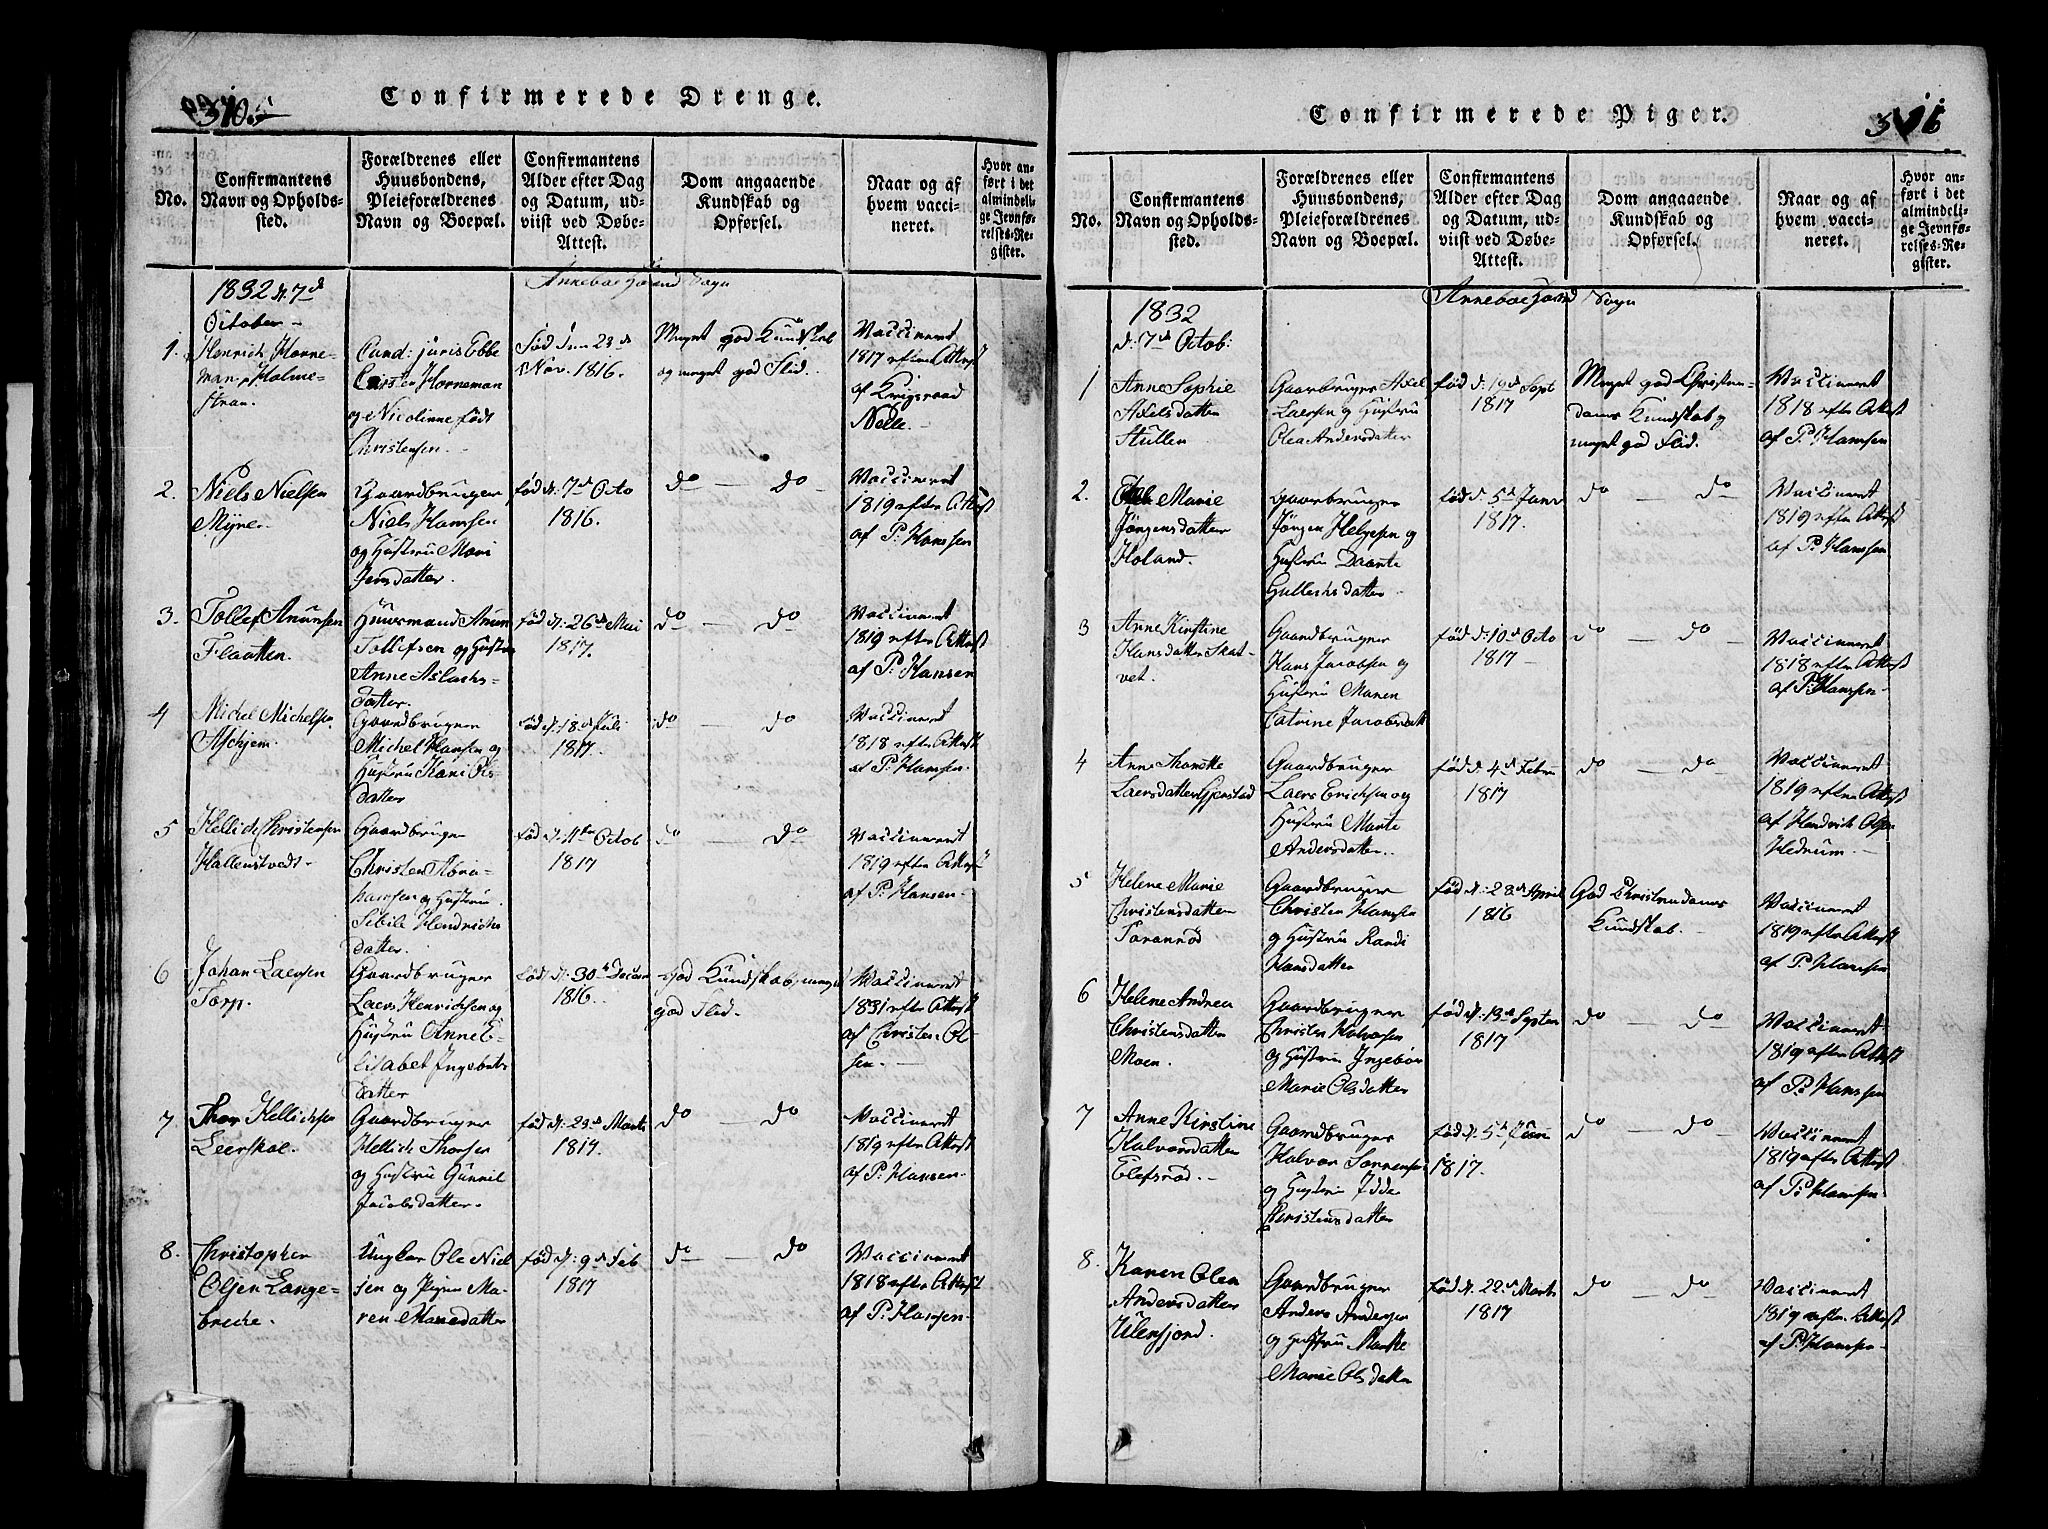 Confirmerede Drenge.
No.
Confirmantens
Navn og Opholds-
sted.
Forældrenes eller
Huusbondens,
Pleieforældrenes
Navn og Boepæl.
Confirmantens
Alder efter Dag
og Datum, ud-
viist ved Døbe-
Attest.
Dom angaaende
Kundskab og
Opførsel.
Naar og af
hvem vacci-
neret.
Hvor an-
ført i det
almindeli-
ge Jevnfø-
relses-Re-
gister.
1832 d. 7d
October
Sogn
1.
Henrich Horne-
man Holme-
stran.
Cand: juris Ebbe
Carsten Horneman
og Nicolinne født
Christensen.
Fød den 23d
Nov. 1816.
Meget god Kundskab
og meget god Flid.
Vaccineret
1817 efter Attest
af Krigsraad
2.
Niels Nielsen
Myre.
Gaardbruger
Niels Hansen
og Hustru Mari
Jensdatter.
fød d. 7d Octo
1816.
do — do
Vaccineret
1819 efter Attest
af P. Hansen
3.
Tollef Anunsen
Flaatten.
Huusmand Anun
Tollefsen og Hustru
Anne Aslachs-
datter.
fød d: 26d Mai
1817.
do — do
Vaccineret
1819 efter Attest
af P: Hansen
4
Michel Michelsen
Askjem.
Gaardbruger
Michel Hansen og
Hustru Kari Ols
datter
fød d. 18d Juli
1817.
do — do
Vaccineret
1818 efter Attest
af P: Hansen.
5
Kellich Christensen
Hallenstvedt.
Gaardbruger
Christen Abra-
hamsen og Hustru
Sibile Hendrichs
datter.
fød d. 11te Octob
1817
do do
Vaccineret
1819 efter Attest
af P: Hansen.
6
Johan Laersen
Torp.
Gaardbruger
Laers Henrichsen og
Hustru Anne E-
lisabet Ingebrets
datter
fød d. 30d Decem
1816.
God Kundskab, meget
god Flid.
Vaccineret
1831 efter Attest
af Christen Ol-
sen.
7
Thor Kellichsen
Leerskal.
Gaardbruger
Kellich Thorsen
og Hustru Gunnil
Jacobsdatter.
fød d. 23d Marts
1817.
do — do
Vaccineret
1819 efter Attest
af P: Hansen.
8.
Christopher
Olsen Lange-
breche.
Ungkar Ole Niel
sen og Pigen Ma-
ren Hansdatter
fød d: 9d Feb
1817
do — do
Vaccineret
1818 efter Attest
af P: Hansen.
Confirmerede Piger.
No.
Confirmantens
Navn og Opholds-
sted.
Forældrenes eller
Huusbondens,
Pleieforældrenes
Navn og Boepæl.
Confirmantens
Alder efter Dag
og Datum, ud-
viist ved Døbe-
Attest.
Dom angaaende
Kundskab og
Opførsel.
Naar og af
hvem vacci-
neret.
Hvor an-
ført i det
almindeli-
ge Jevnfø-
relses-Re-
gister.
1832
d: 7d Octob:
Sogn
1
Anne Sophie
Axelsdatter
Stullen
Gaardbruger Axel
Laersen og Hustru
Olea Andersdatter
fød d: 19d Sept
1817
Meget god Christen-
doms Kundskab og
meget god Flid.
Vaccineret
1818 efter Attest
af P: Hansen
2.
Marie
Jörgensdatter
Holand.
Gaardbruger
Jörgen Helgesen og
Hustru Daarte
Gullechsdatter.
fød d. 5d Janr
1817.
do — do
Vaccineret
1819 efter Attest
af P: Hansen
3
Anne Kirstine
Hansdatter Skat-
vet.
Gaardbruger
Hans Jacobsen og
Hustru Maren
Catrine Jacobsdatt
fød d: 10d Octo
1817
do — do
Vaccineret
1818 efter Attest
af P: Hansen
4
Anne
Laersdatter Gjerstad
Gaardbruger
Laers Erichsen og
Hustru Marte
Andersdatter.
fød d. 4d Febru
1817
do — do
Vaccineret
1819 efter Attest
af Hendrik Olsen
Hedrum.
5
Helene Marie
Christensdatter
Toranrød
Gaardbruger
Christen Hansen
og Hustru Randi
Hansdatter
fød d: 28d April
1816
God Christendoms
Kundskab.
Vaccineret
1819 efter Attest
af P: Hansen
6
Helene Andrea
Christensdatter
Moen.
Gaardbruger
Christen Halvorsen
og Hustru Ingebor
Marie Olsdatter
fød d: 13d Septem
1817
do — do
Vaccineret
1819 efter Attest
af P: Hansen
7
Anne Kirstine
Halvorsdatter
Elefsrød.
Gaardbruger
Halvor Sørensen
og Hustru Idde
Christensdatter
fød d. 5d Juni
1817.
do — do
Vaccineret
1819 efter Attest
af P: Hansen
8.
Karen Olea
Andersdatter
Ulenfjord.
Gaardbruger
Anders Andersen
og Hustru Marthe
Marie Olsdatter
fød d. 22d Marts
1817
do — do
Vaccineret
1819 efter Attest
af P: Hansen